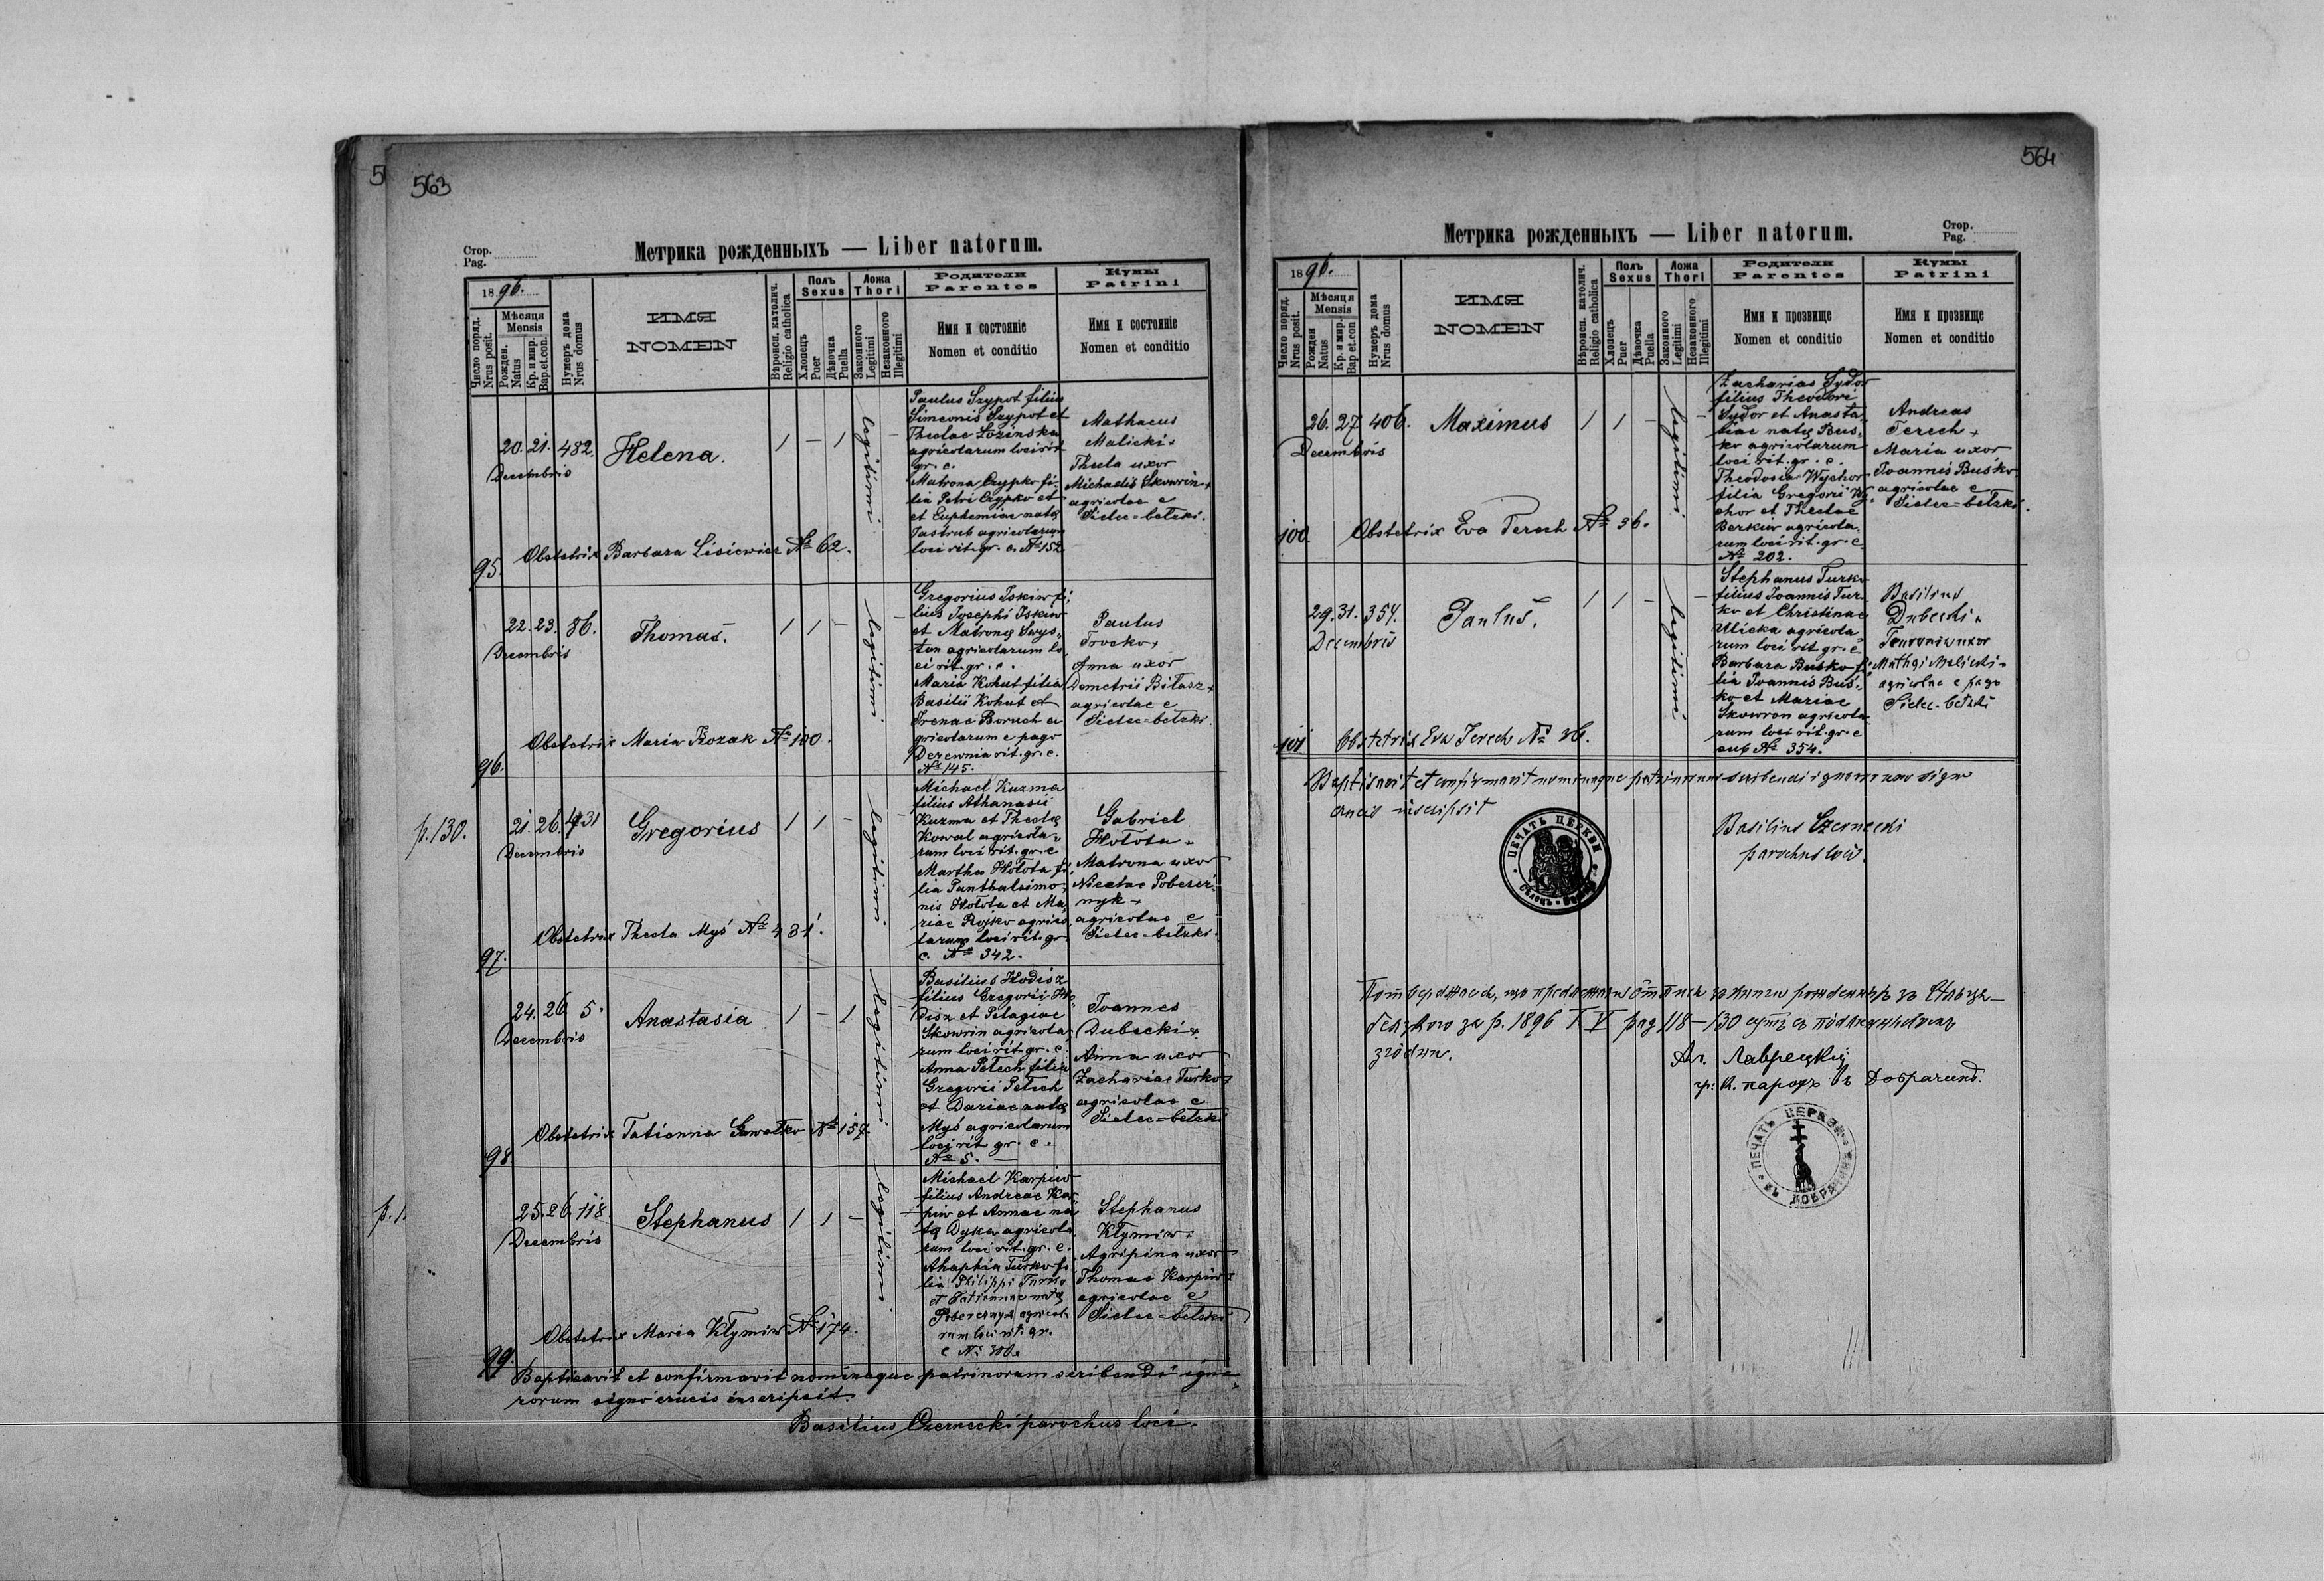 5
563
Стор.
Pag.
Метрика рожденныхъ — Liber natorum.
1896.
Число поряд.
Nrus posit.
Мѣсяця
Mensis
Рожден.
Natus
Кр. и мир.
Bap.et.con.
Нумеръ дома
Nrus domus
ИМЯ
NOMEN
Вѣроисп. католич.
Religio catholica
Полъ
Sexus
Хлопецъ
Puer
Дѣвочка
Puella
Ложа
Thori
Законного
Legitimi
Незаконного
Illegitimi
Родители
Parentes
Имя и состояніе
Nomen et conditio
Кумы
Patrini
Имя и состояніе
Nomen et conditio
95.
20. 21. 482.
Decembris
Helena.
1 — 1
legitimi
—
Paulus Szypot filius
Simeonis Szypot et
Theclae Łozinska
agricolarum loci rit
gr. c.
Matrona Czypko fi-
lia Petri Czypko et
et Euphemiae natę
Jastrub agricolarum
loci rit. gr. c. № 152
Mathaeus
Malicki +
Thecla uxor
Michaelis Skowrin +
agricolae e
Sielec=bełzki.
Obstetrix Barbara Lisiewicz № 62.
96.
22. 23. 86.
Decembris
Thomas.
1 1 —
legitimi
—
Gregorius Iskiw fi-
lius Josephi Iskiw
et Matronę Swys-
tun agricolarum lo
ci rit. gr. c.
Maria Kohut filia
Basilii Kohut et
Irenae Boruch a
gricolarum e pago
Derewnia rit. gr. c.
№ 145.
Paulus
Trocko +
Anna uxor
Demetrii Biłasz +
agricolae e
Sielec=bełzki.
Obstetrix Maria Kozak № 100.
p. 130.
97.
21. 26. 431
Decembris
Gregorius
1 1 —
legitimi
—
Michael Kuzma
filius Athanasii
Kuzma et Theclę
Kowal agricola-
rum loci rit. gr. c
Martha Hołota fi-
lia Panthaleimo-
nis Hołota et Ma-
riae Rojko agrico
larum loci rit. gr.
c. № 342.
Gabriel
Hołota +
Matrona uxor
Nicetae Poberez-
nyk +
agricolae e
Sielec=bełzki.
Obstetrix Thecla Myś № 431.
98.
24. 26. 5.
Decembris
Anastasia
1 — 1
legitimi
—
Basilius Hodisz
filius Gregorii Ho-
disz et Pelagiae
Skowrin agricola-
rum loci rit. gr. c.
Anna Petech filia
Gregorii Petech
et Dariae natę
Myś agricolarum
loci rit gr. c.
№ 5. —
Joannes
Dubecki +
Anna uxor
Zachariae Turko +
agricolae e
Sielec=bełzki
Obstetrix Tatianna Gawałko № 157.
p. 1.
99.
25. 26. 118.
Decembris
Stephanus
1 1 —
legitimi
—
Michael Karpiw
filius Andreae Kar-
piw et Annae na
tę Dyka agricola
rum loci rit. gr. c.
Ahaphia Turko fi-
lia Philippi Turko
et Tatiannae natę
Pobereznyk agricola
rum loci rit. gr.
Stephanus
Kłymiw +
Agripina uxor
Thomae Karpiw +
agricolae e
Sielec=bełzki
Obstetrix Maria Kłymiw № 174.
Baptisavit et confirmavit nominaque patrinorum scribendi igna-
rorum signo crucis inscripsit.
Basilius Czernecki parochus loci.
564
Метрика рожденныхъ — Liber natorum.
Стор.
Pag.
1896.
Число поряд.
Nrus posit.
Мѣсяця
Mensis
Рожден
Natus
Кр. и мир.
Bap et.con
Нумеръ дома
Nrus domus
ИМЯ
NOMEN
Вѣроисп. католич.
Religio catholica
Полъ
Sexus
Хлопецъ
Puer
Дѣвочка
Puella
Ложа
Thori
Законного
Legitimi
Незаконного
Illegitimi
Родители
Parentes
Имя и прозвище
Nomen et conditio
Кумы
Patrini
Имя и прозвище
Nomen et conditio
100.
26. 27. 406.
Decembris
Maximus
1 1 —
legitimi
—
Zacharias Sydor
filius Theodori
Sydor et Anasta-
siae natę Bus-
ko agricolarum
loci rit. gr. c.
Theodosia Wychor
filia Gregorii Wy-
chor et Theclae
Berkiw agricola-
rum loci rit. gr. c.
№ 202.
Andreas
Terech +
Maria uxor
Joannis Buśko
agricolae e
Sielec=bełzki.
Obstetrix Eva Terech № 36.
101
29. 31. 354.
Decembris
Paulus.
1 1 —
legitimi
—
Stephanus Turko
filius Joannis Tur-
ko et Christinae
Ulicka agricola-
rum loci rit. gr. c.
Barbara Busko fi-
lia Joannis Buś-
ko et Mariae
Skowron agricola
rum loci rit. gr. c
sub № 354.
Basilius
Dubecki +
uxor
Mathęi Malicki +
agricolae e pago
Sielec-bełzki
Obstetrix Eva Terech № 36.
Baptisavit et confirmavit nominaque patrinorum scribendi ignarorum signo
crucis inscripsit
Basilius Czernecki
parochus loci.
ПЕЧАТЬ ЦЕРКВИ
Потверджаєся, що предлежачи отписи зъ книги рожденныхъ зъ Сѣльця
белзкого за р. 1896 T V pag 118—130 суть съ подлинникомъ
згодни.
Ал. Лаврецкій
гр. к. парохъ въ Добрачинѣ.
ПЕЧАТЬ ЦЕРКВИ